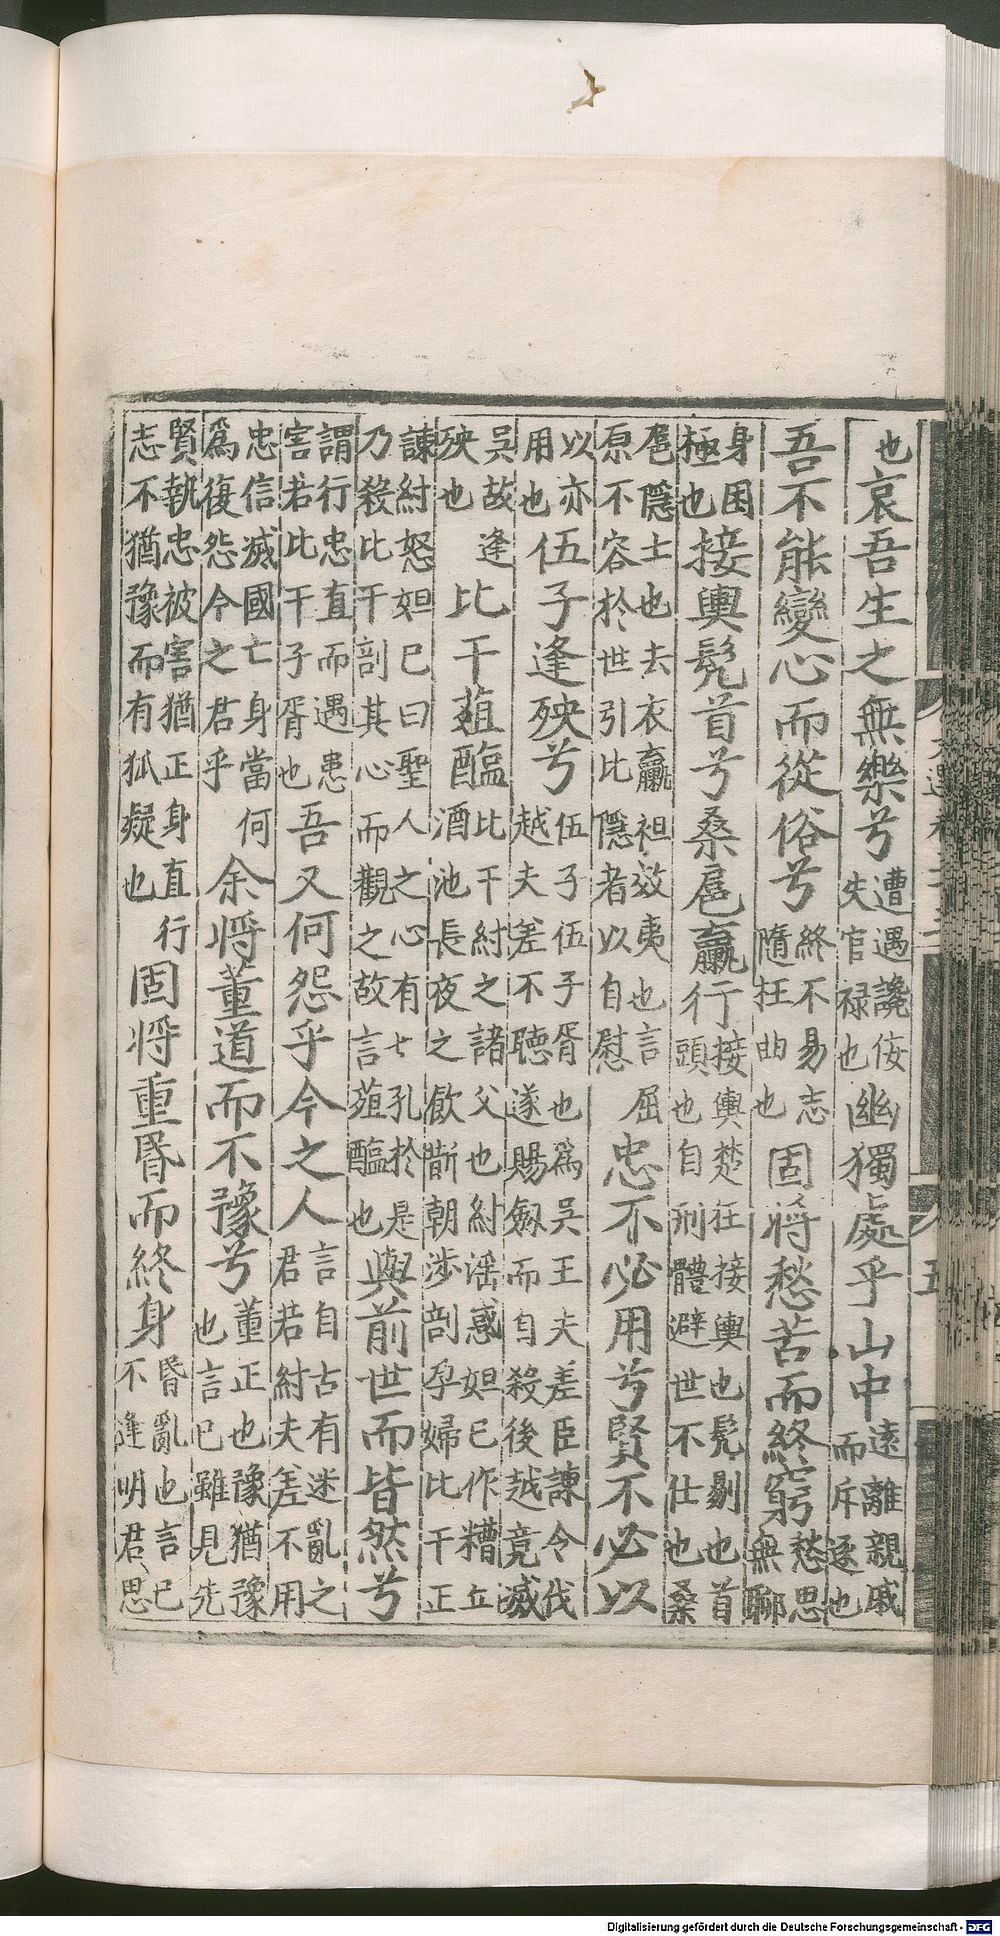 也哀吾生之無樂兮遭遇讒佞失官祿也幽獨處乎山中遠離親戚而斥逐也
吾不能變心而從俗兮終不易志隨枉曲也固將愁苦而終窮愁思無聊
身困極也接輿髡首兮桑扈臝行接輿楚狂接輿也髡剔也首頭也自刑體避世不仕也桑
扈隱士也去衣臝袒效夷也言屈原不容於世引比隱者以自慰忠不必用兮賢不必以
以亦用也伍子逢殃兮伍子伍子胥也為吳王夫差臣諫令伐越夫差不聽遂賜劔而自殺後越竟滅
吳故逢殃也比干菹醢比干紂之諸父也紂淫惑妲己作糟丘酒池長夜之飲斮朝涉剖孕婦比干正
諫紂怒妲己曰聖人之心有七孔於是乃殺比干剖其心而觀之故言菹醢也與前世而皆然兮
謂行忠直而遇患害若比干子胥也吾又何怨乎今之人言自古有迷亂之君若紂夫差不用
忠信滅國亡身當何為復怨今之君乎余將董道而不豫兮董正也豫猶豫也言己雖見先
賢執忠被害猶正身直行志不猶豫而有狐疑也固將重昬而終身昬亂也言己不逢明君思
Digitalisierung gefördert durch die Deutsche Forschungsgemeinschaft - DFG